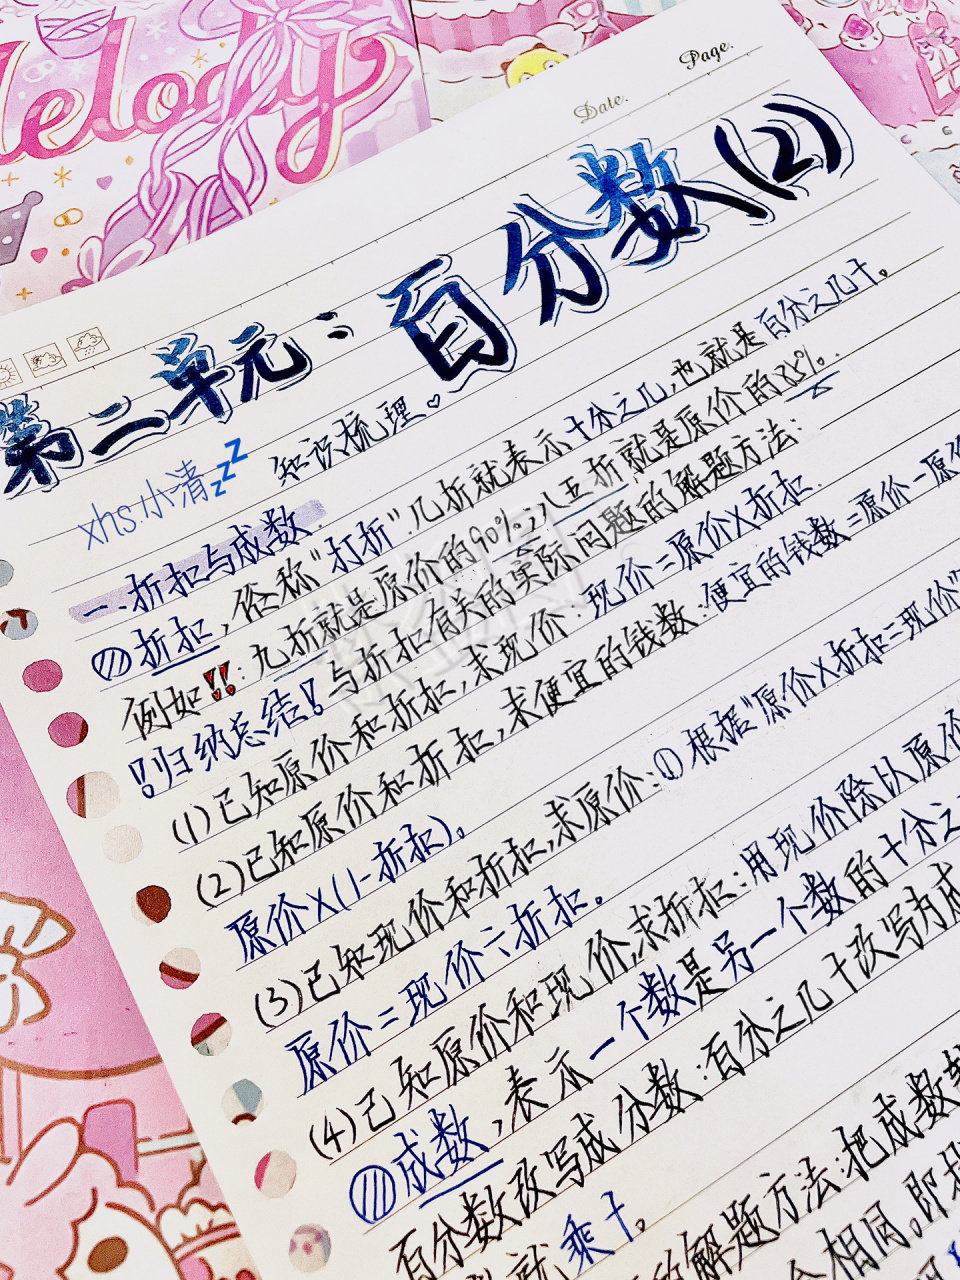 Melody
Page.
Date.
第二单元：百分数(2)
xhs:小清zzz
知识梳理。
一.折扣与成数.
折扣，俗称“打折”.几折就表示十分之几，也就是百分之几十。
例如!!:九折就是原价的90%;八五折就是原价的85%.
!归纳总结!与折扣有关的实际问题的解题方法:
(1)已知原价和折扣，求现价:现价=原价×折扣.
(2)已知原价和折扣，求便宜的钱数:便宜的钱数=原价-原价
原价×(1-折扣)。
(3)已知现价和折扣，求原价:①根据“原价×折扣=现价”
原价=现价÷折扣。
(4)已知原价和现价，求折扣:用现价除以原价
成数，表示一个数是另一个数的十分之
百分数改写成分数:百分之几十改写为成
就乘十。
的解题方法:把成数转
相同。即